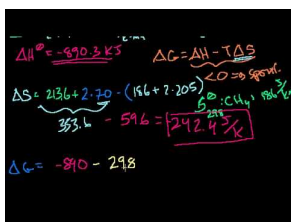 ΔH° = -890.3 KJ
ΔG = ΔH - TΔS
<0 ⇒ spont.
ΔS = 213.6 + 2·70 - (186 + 2·205)
S°: CH₄: 186 J/K
298
353.6 - 596 = -242.4 J/K
ΔG = -890 - 298